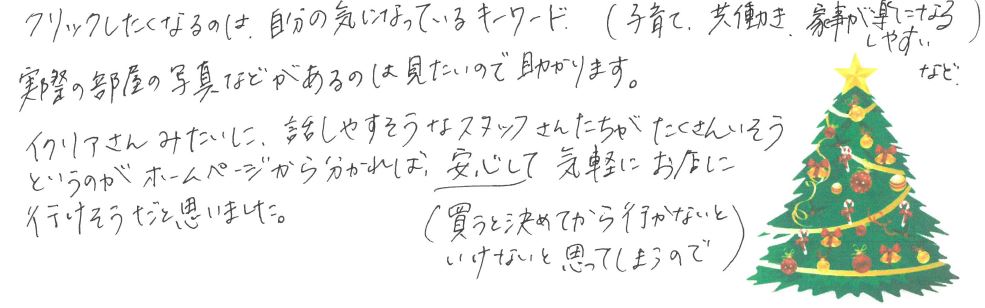 クリックしたくなるのは、自分の気になっているキーワード。(子育て、共働き、家事が楽になる
しやすい
など)
実際の部屋の写真などがあるのは見たいので助かります。
イクリアさんみたいに、話しやすそうなスタッフさんたちがたくさんいそう
というのがホームページから分かれば、安心して気軽にお店に
行けそうだと思いました。
(買うと決めてから行かないと
いけないと思ってしまうので)